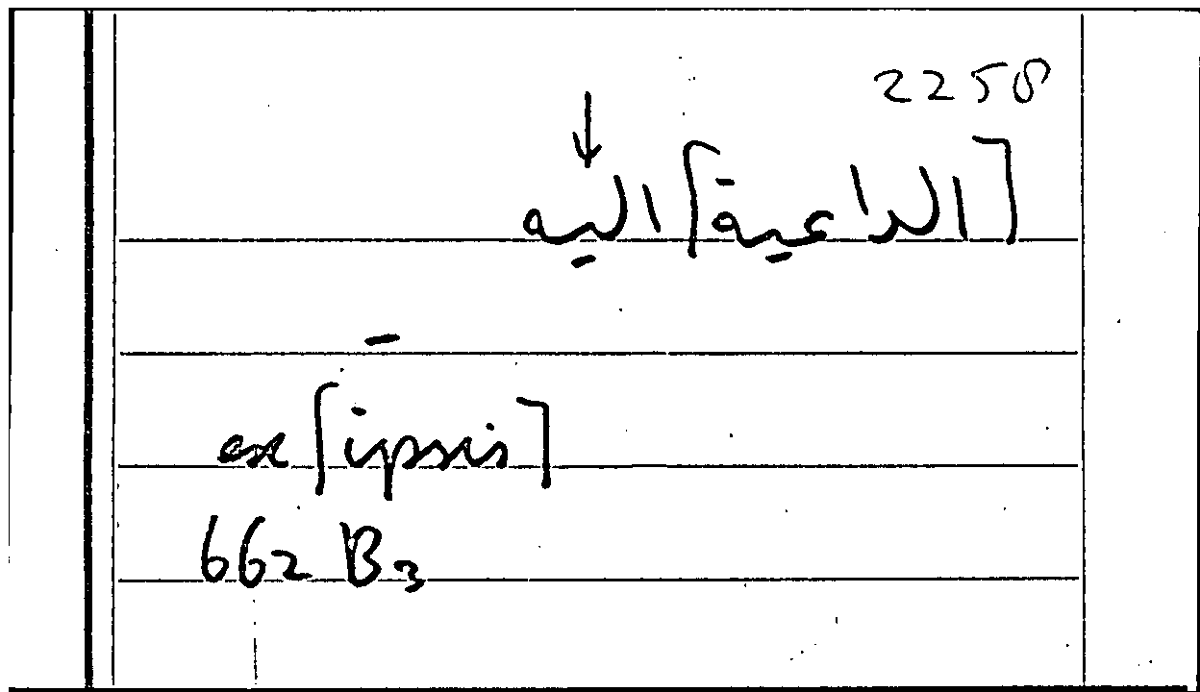 2258
↓
[الداعية] اليه
ex [ipsis]
662 B3